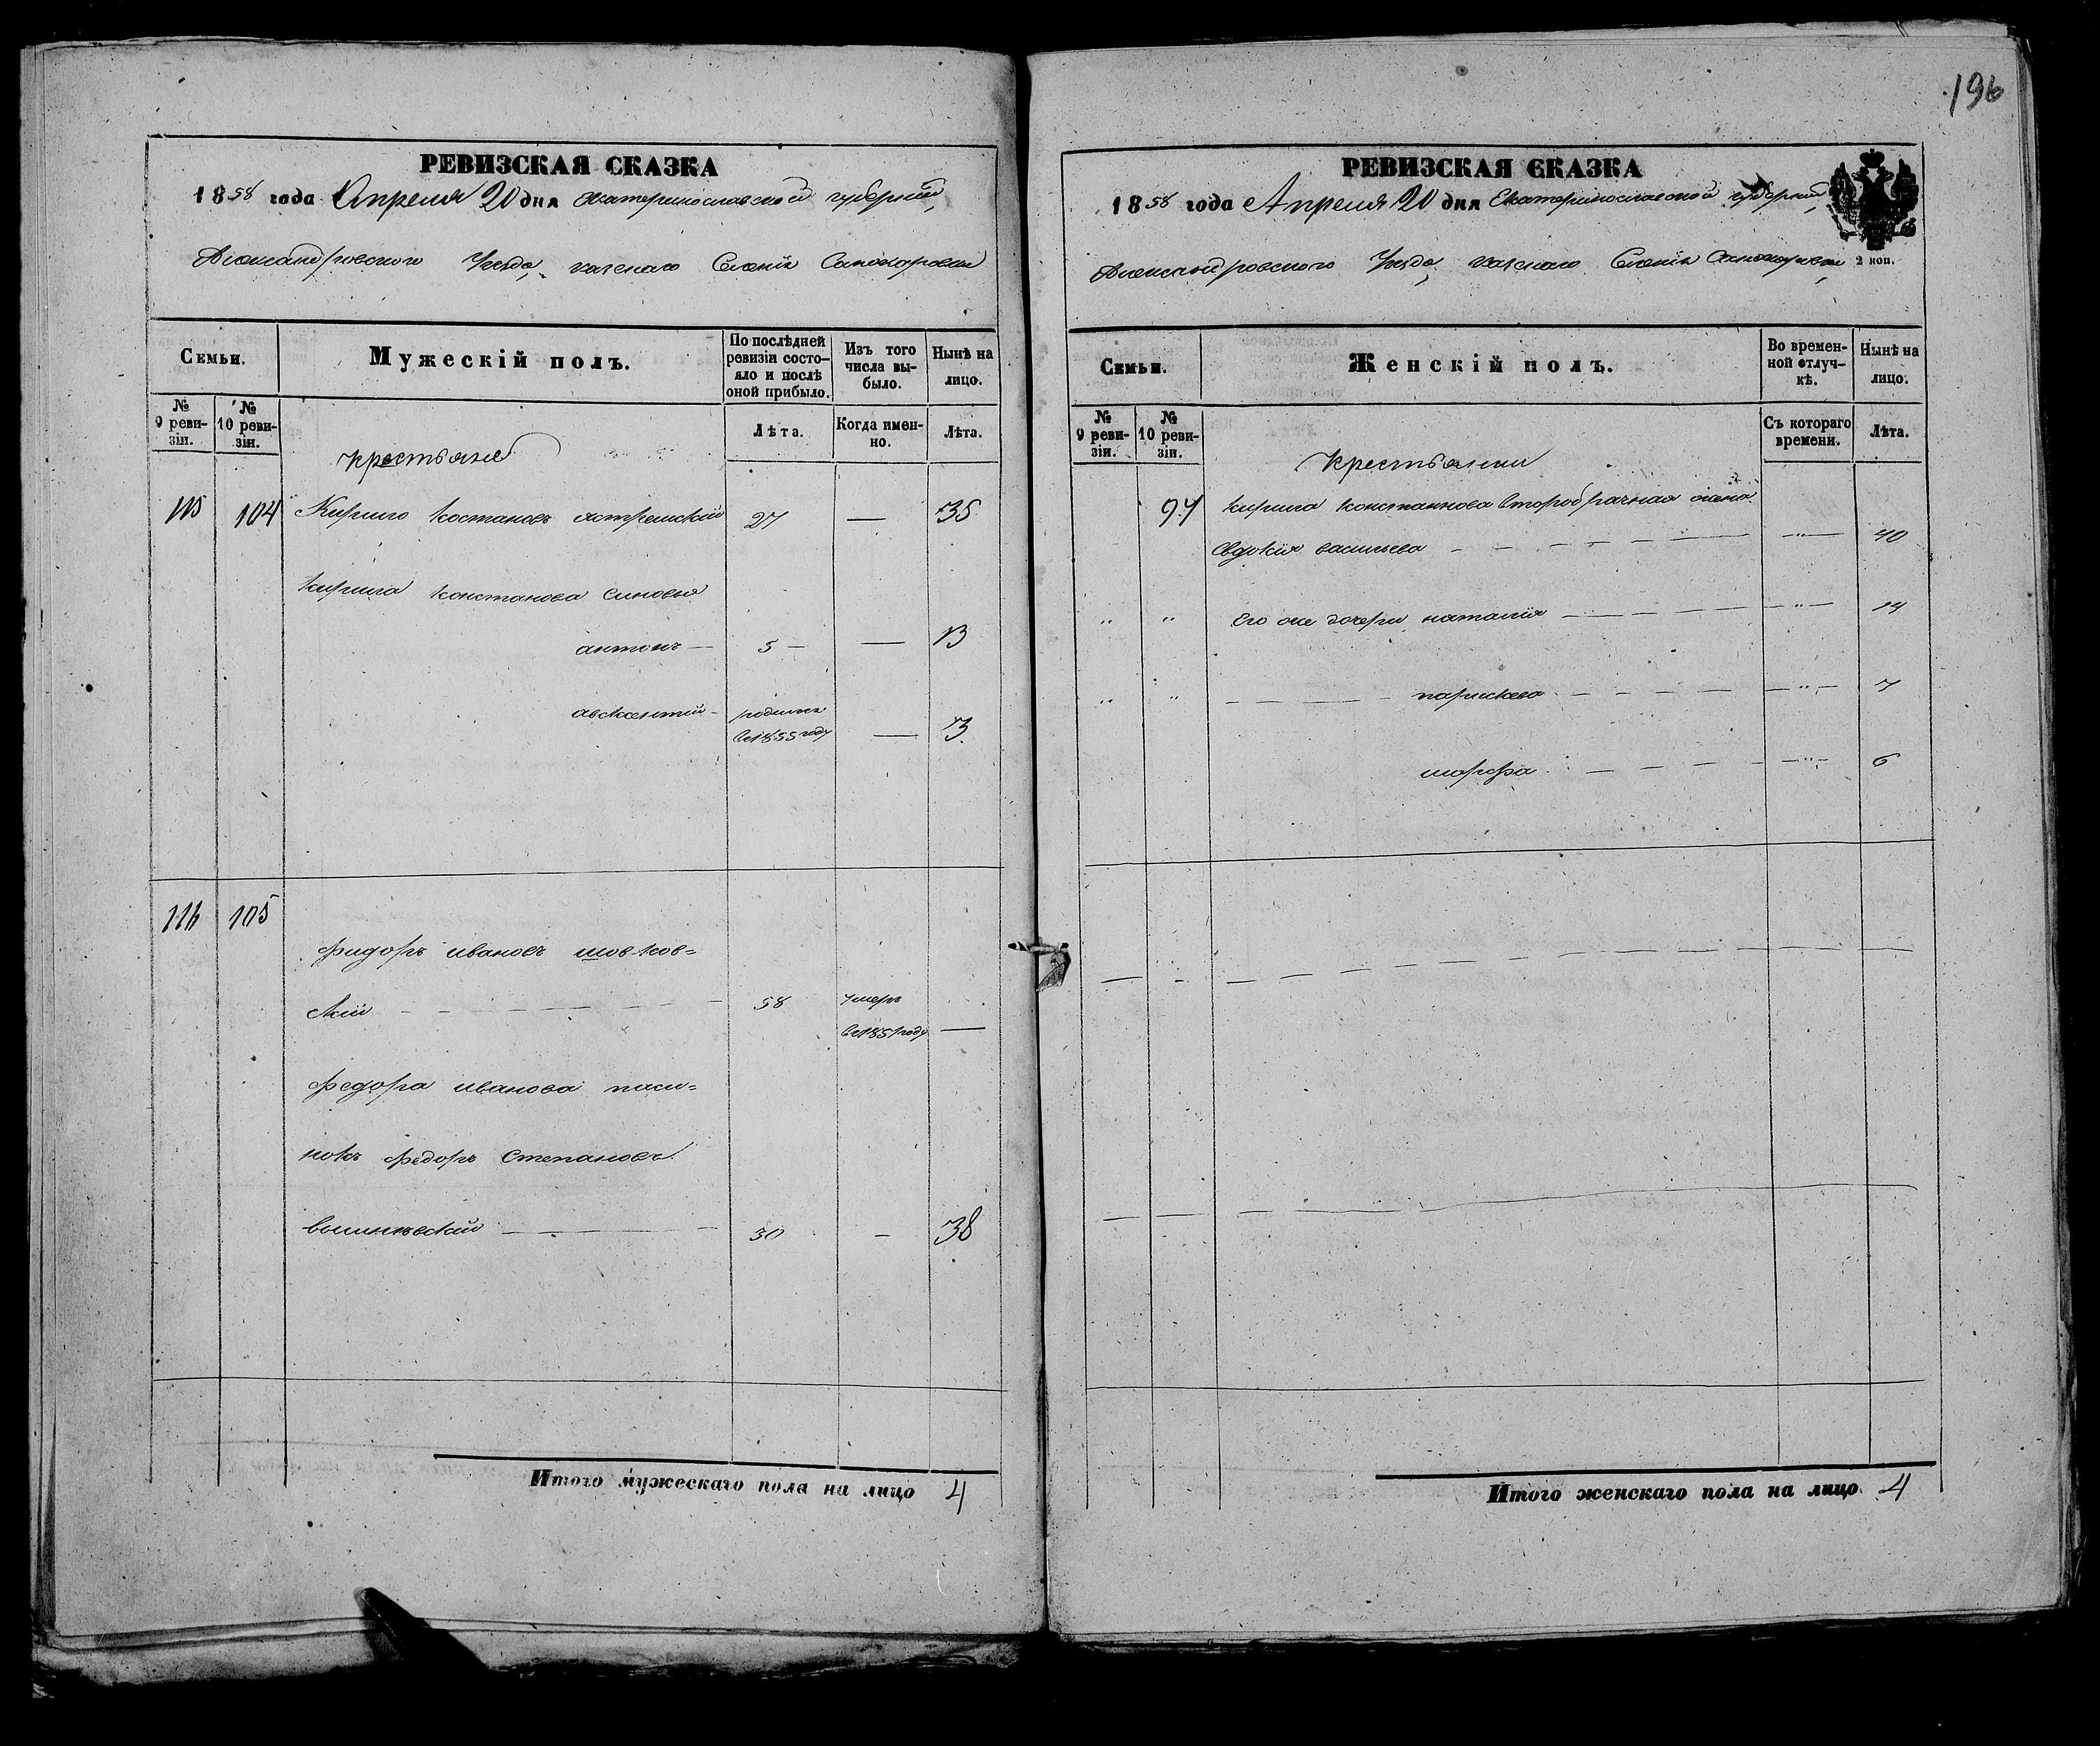 196
РЕВИЗСКАЯ СКАЗКА
1858 года Апреля 20 дня Екатеринославской губерніи,
Александровского Уезда, казенаго Селенія
Семьи.
Мужескій полъ.
По послѣдней ревизіи состо-яло и послѣ оной прибыло.
Изъ того числа вы-было.
Нынѣ на лицо.
№ 9 реви-зіи.
№ 10 реви-зіи.
Лѣта.
Когда имен-но.
Лѣта.
крестьяне
115 104 Кирило Костановъ 27 — 35
Кирила Констанова Синовья
антонъ — 5 — — 13
авксентий – родился
Вс1855 году — 3
116 105
Фидоръ ивановъ шовков=
ский — — — 58 умеръ
Вс1851 году —
Федора иванова паси=
нокъ федоръ Степановъ
— — 30 – 38
Итого мужескаго пола на лицо 4
РЕВИЗСКАЯ СКАЗКА
1858 года Апреля 20 дня Екатеринославской губерніи,
Александровского Уезда, казенаго Селенія
2 коп.
Семьи.
Женскій полъ.
Во времен-ной отлуч-кѣ.
Нынѣ на лицо.
№ 9 реви-зіи.
№ 10 реви-зіи.
Съ котораго времени.
Лѣта.
Крестьянки
кирила констанкова второбрачная жена
Евдокія васильева — — — „ — 40
„ „ Его же дочери наталія — — — „ — 14
„ „ — параскева — — — „ — 7
марфа — — — „ — 6
Итого женскаго пола на лицо 4